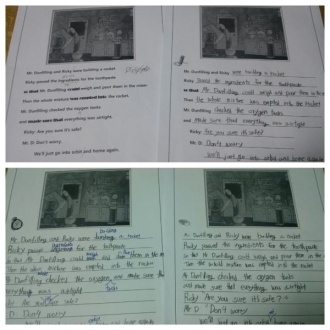 Mr Dunfilling and Ricky were building a rocket.
Ricky poured the ingredients for the toothpaste
so that Mr Dunfilling could weigh and pour them in the mixer.
Then the whole mixture was emptied into the rocket.
Mr Dunfilling checked the oxygen tanks
and made sure that everything was airtight.
Ricky: Are you sure it's safe?
Mr. D: Don't worry.
We'll just go into orbit and home again.
Mr. Dunfilling and Ricky were building a rocket
Ricky poured the ingredients for the toothpaste
so that Mr. Dunfilling could weigh and pour them in the
Then the whole mixture was emptied into the rocket
Mr. Dunfilling checked the oxygen tank
and made sure that everything was airtight
Ricky: Are you sure it's safe?
Mr. D: Don't worry
We'll just go into orbit and home again
Mr Dunfilling and Ricky were building
Ricky poured the ingredients for the toothpaste
so that Mr Dunfilling could and them in the
Then the whole mixture was emptied into the rocket
Mr Dunfilling checked the oxygen and made sure the
everything was airtight
safe?
D: Don't worry
Mr. Dunfilling and Ricky were building a rocket
Ricky poured the ingredients for the toothpaste
so that Mr. Dunfilling could weight and pour them in the
Then the whole mixture was emptied into the rocket
Mr. Dunfilling checked the oxygen tanks
and made sure that everything was airtight
Ricky: Are you sure it's safe?
Mr. D: "Don't worry